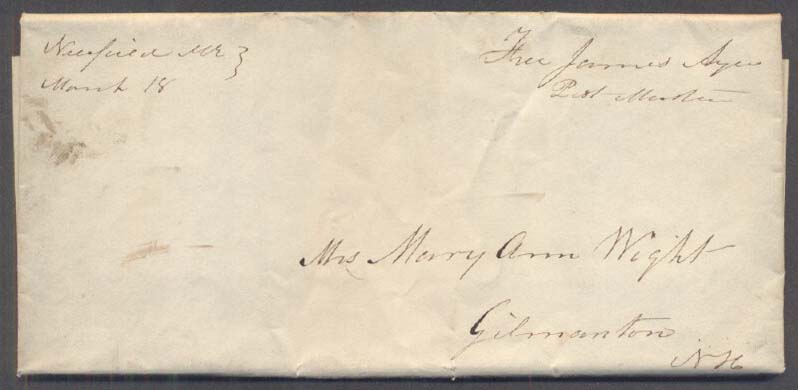 Newfield Me }
March 18
Free James Ayer
Post Master
Mrs Mary Ann Wight
Gilmanton
N H